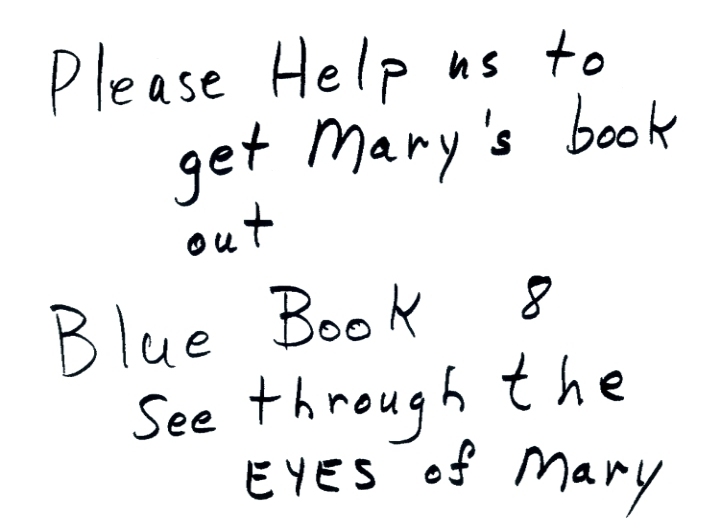 Please Help us to
get Mary's book
out
Blue Book 8
See through the
EYES of Mary